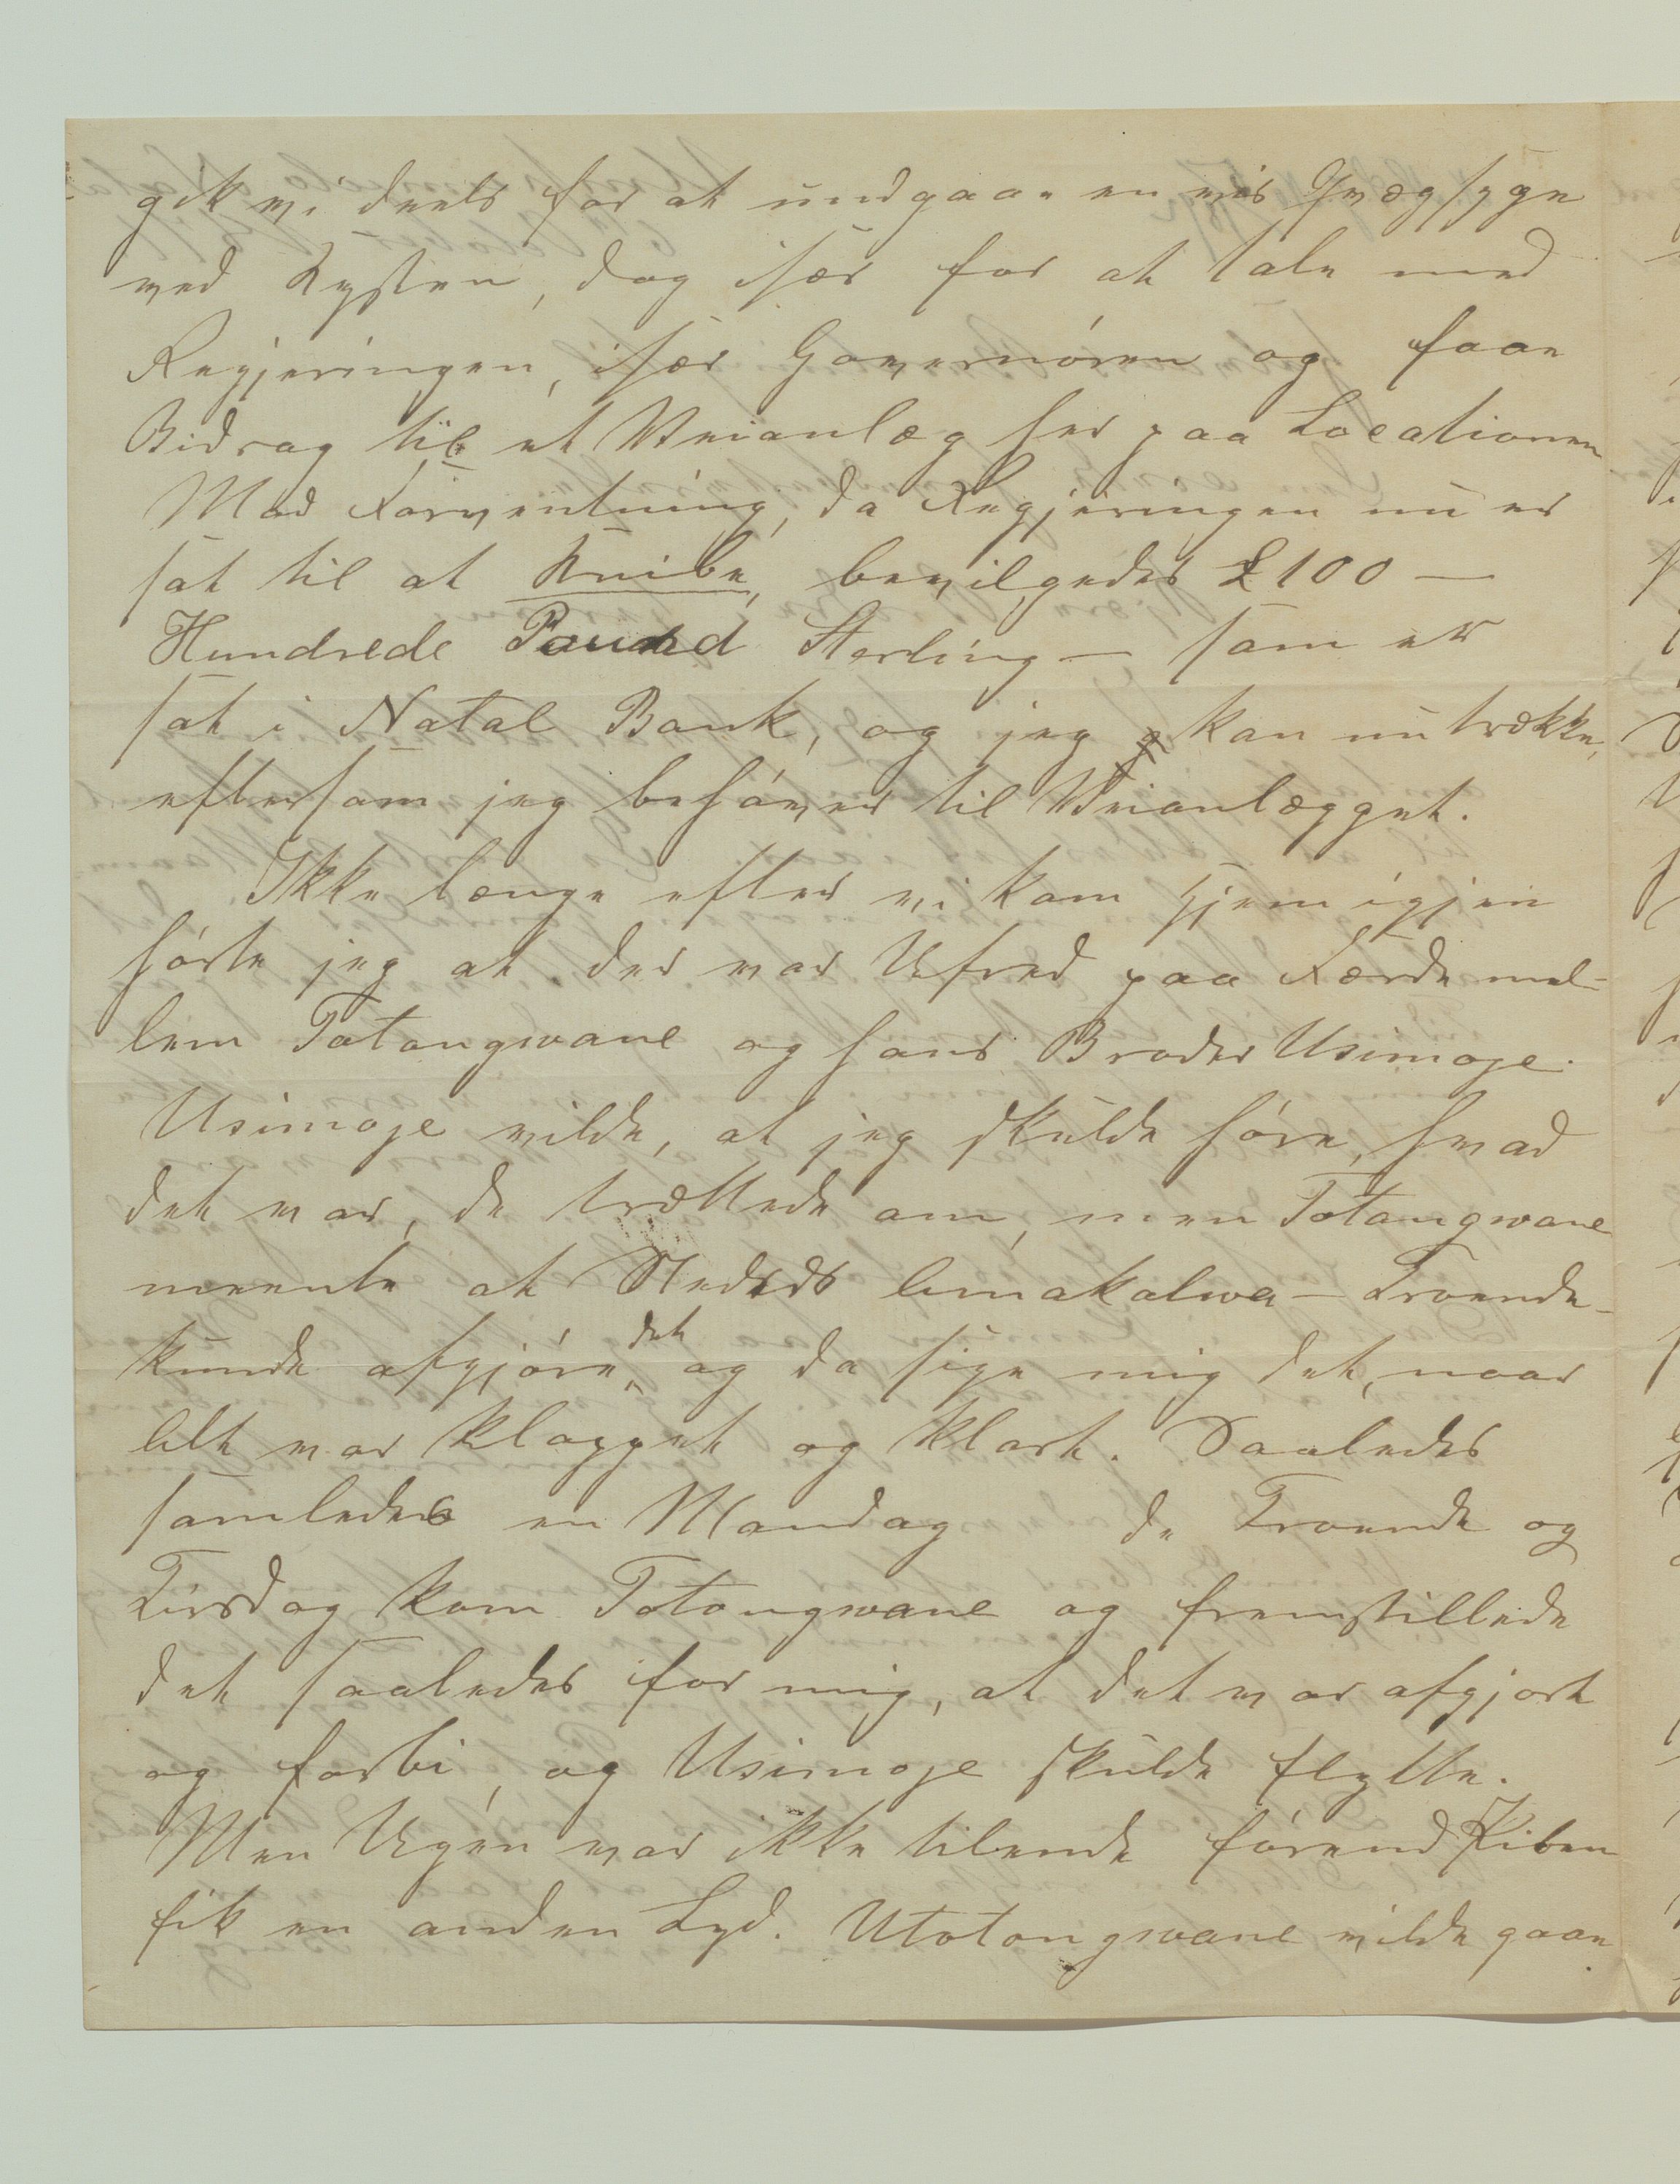 gik vi deels for at undgaae en vis Qvægsyge
ved Kysten, dog især for at tale med
Regjeringen, især Gouvernören og faae
Bidrag til et Veianlæg her paa Locationen
Mod Forventning, da Regjeringen nu er
sat til at knibe, bevilgedes £100 —
Hundrede Pound Sterling — som er
sat i Natal Bank, og jeg kan nu trække,
eftersom jeg behöver til Veianlægget.
Ikke længe efter vi kom hjem igjen
hörte jeg at der var Ufred paa Færde mel-
lem Totongwane og hans Broder Usimoje.
Usimoje vilde, at jeg skulde höre, hvad
det var, de trættede om, men Totangwane
meente at Stedets amakalwa — Troende —
kunde afgjöre det og da sige mig det, naar
Alt var klappet og klart. Saaledes
samledes en Mandag de Troende og
Tirsdag kom Totongwane og fremstillede
det saaledes for mig, at det var afgjort
og forbi, og Usimoje skulde flytte.
Men Ugen var ikke tilende förend Piben
fik en anden Lyd. Utotongwane vilde gaae